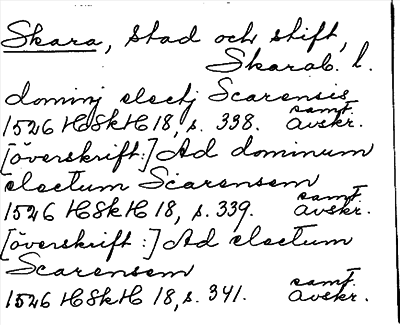 Skara, stad och stift,
Skarab. l.
dominj electj Scarensis
1526 HSkH 18, s. 338. samt. avskr.
[överskrift:] Ad dominum
electum Scarensem
1526 HSkH 18, s. 339. samt. avskr.
[överskrift:] Ad electum
Scarensem
1526 HSkH 18, s. 341. samt. avskr.